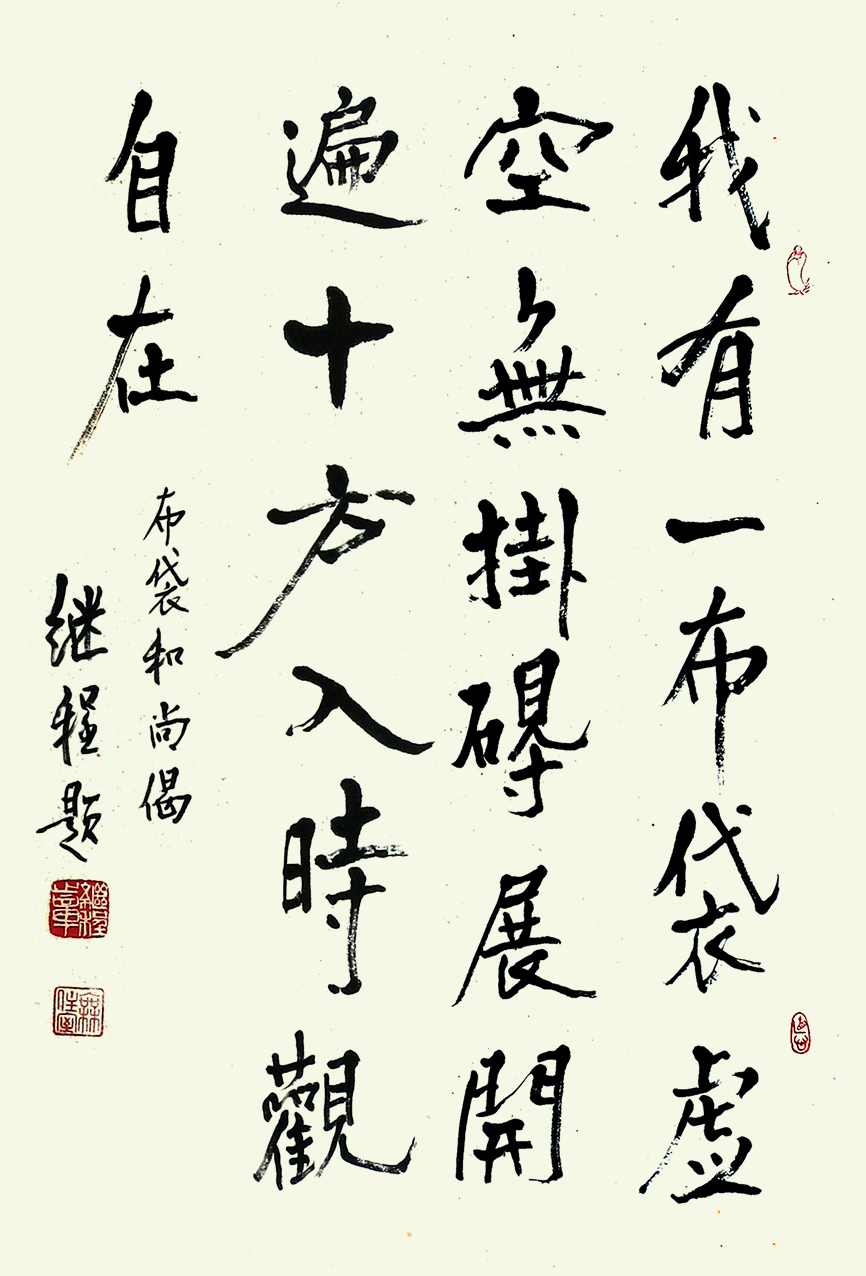 我有一布袋虛
空無掛碍展開
遍十方入時觀
自在
布袋和尚偈
继程题